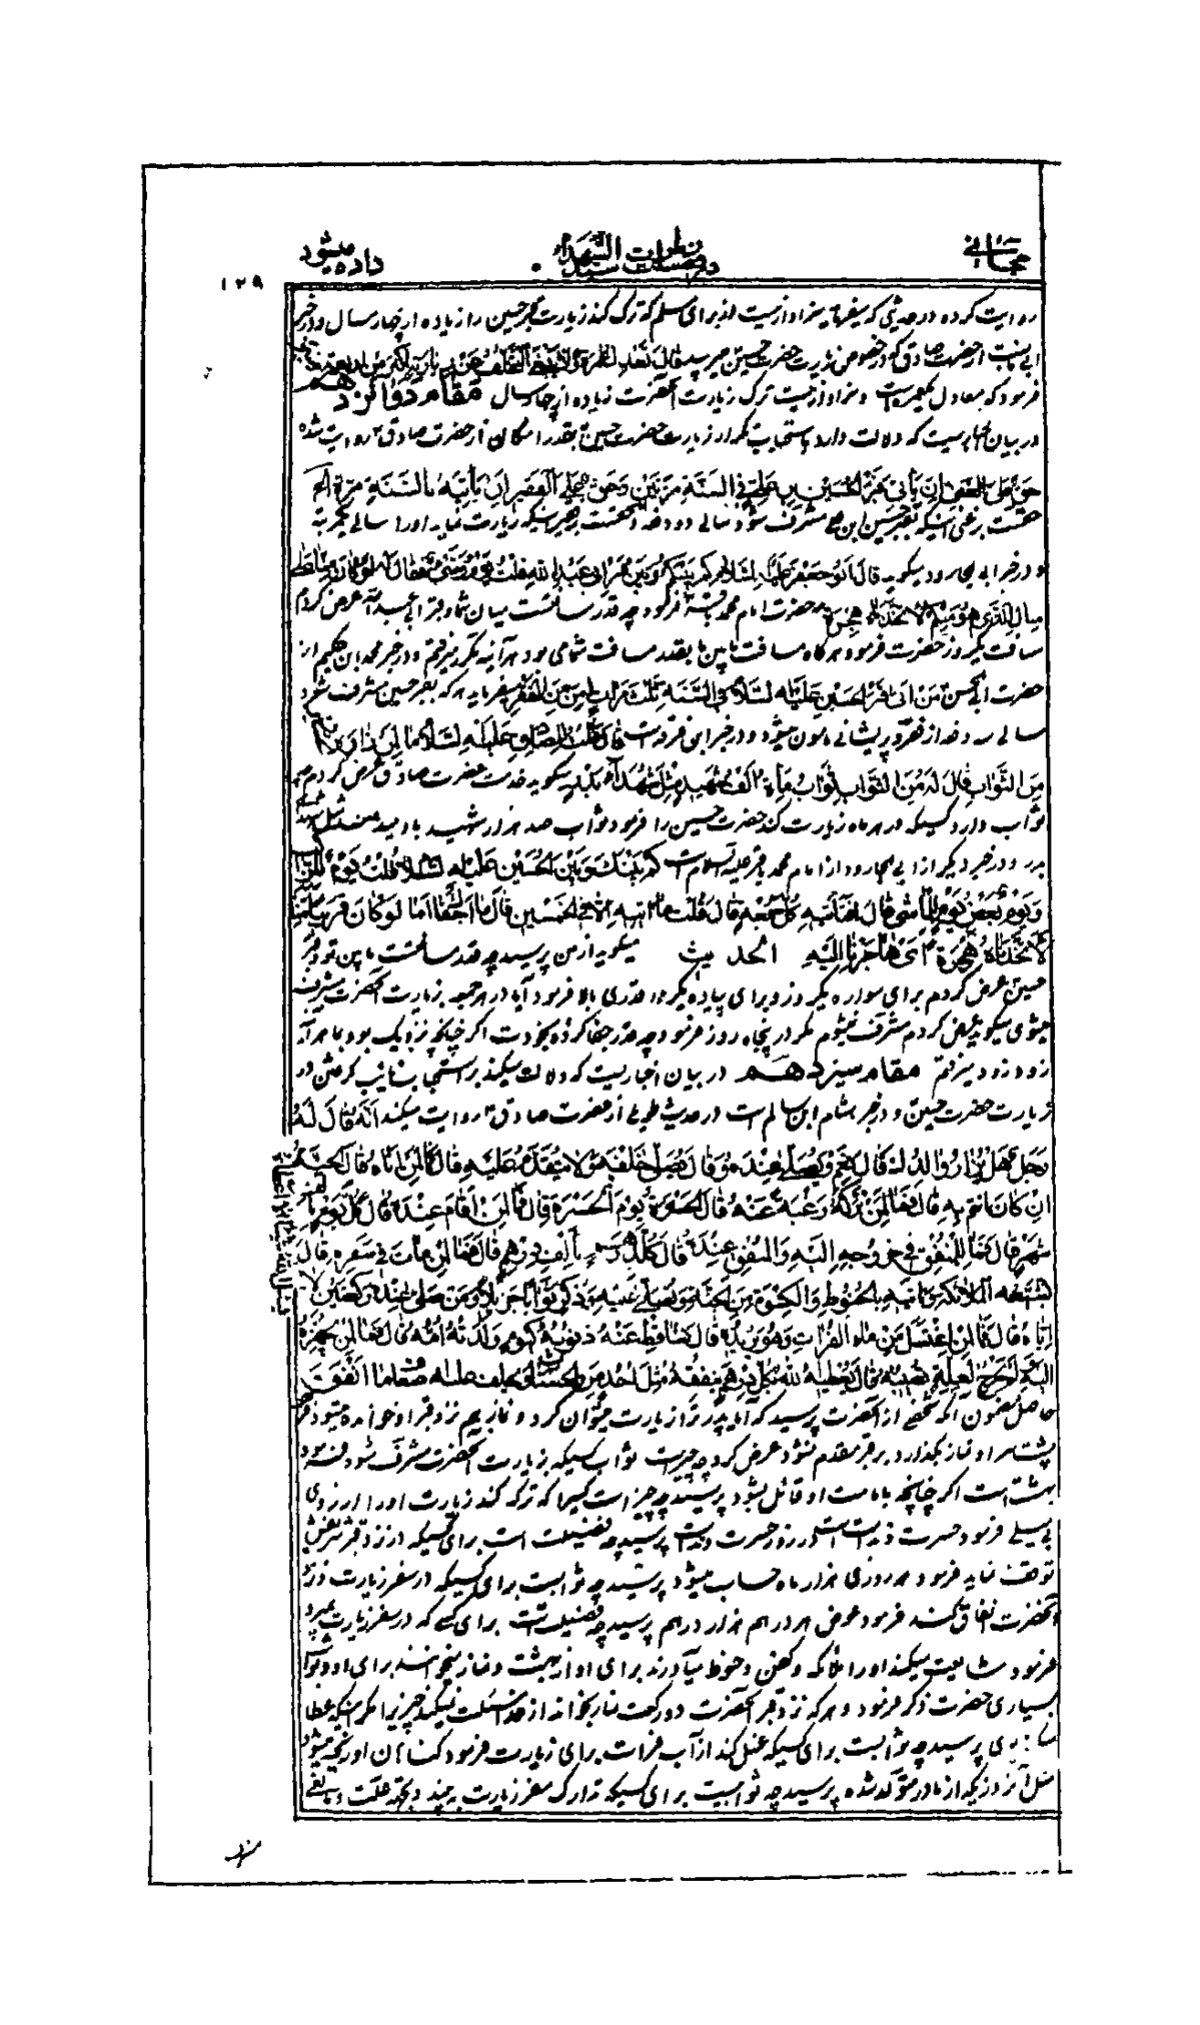 مجانی
در فضیلت سید الشهداء
داده میشود
۱۲۹
روایت کرده در حدیثی که میفرماید سزاوار نیست از برای مسلم که ترک کند زیارت قبر حسین را زیاده از چهار سال و در خبر
از حضرت صادق که در خصوص زیارت حضرت حسین میپرسید قال
فرمود که معادل و سزاوار نیست ترک زیارت آنحضرت زیاده از چهار سال مقام دوازدهم
در بیان اخباریست که دلالت دارد باستحباب تکرار زیارت حضرت حسین بقدر امکان از حضرت صادق روایت شده
حق علی الغنی ان یأتی قبر الحسین بن علی فی السنة مرتین وحق علی الفقیر ان یأتیه بالسنة مرة
بر غنی اینکه بقبر حسین ابن علی مشرف شود سالی دو دفعه زیارت نماید او را سالی یکمرتبه
و در خبر ابی الجارود میگوید قال ابو جعفر علیه السلام کم بینکم وبین قبر ابی عبد الله قلت یوم وشیء فقال لو کان
منا مثل الذی هو منکم لاتخذناه هجرة حضرت امام محمد باقر فرمود چه قدر مسافتست میان شما و قبر ابی عبد الله عرض کردم
مسافت یکروز حضرت فرمود هر گاه مسافت مابین ما بقدر مسافت شما می بود هر آینه مکرر میرفتم و در خبر محمد ابن حکیم از
حضرت ابی الحسن من اتی قبر الحسین علیه السلام فی السنة ثلث مرات امن من الفقر میفرماید هر که بقبر حسین مشرف شود
سالی سه دفعه از فقر و پریشانی مأمون میشود و در خبر ابن فرقد است قال قلت للصادق علیه السلام ما لمن زار
من الثواب قال له من الثواب ثواب مأة الف شهید مثل شهداء بدر میگوید خدمت حضرت صادق عرض کردم چه
ثواب دارد کسیکه در هر ماه زیارت کند حضرت حسین را فرمود ثواب صد هزار شهید باو میدهند مثل شهدای
بدر و در خبر دیگر از ابی الجارود از امام محمد باقر علیه السلام است کم بینک وبین الحسین علیه السلام قلت یوم للراکب
ویوم وبعض یوم للماشی قال افتأتیه کل جمعة قال قلت ما اتیه الا فی الخمسین قال ما اجفاکم اما لو کان قریبا منا
لاتخذناه هجرة ای هاجرنا الیه الحدیث میگوید از من پرسید چه قدر مسافتست مابین تو و قبر
حسین عرض کردم برای سواره یکروز و برای پیاده یکروز و قدری بالا فرمود آیا در هر جمعه زیارت آنحضرت مشرف
میشوی میگوید عرض کردم مشرف نمیشوم مگر در پنجاه روز فرمود چه قدر جفا کرده بخودت اگر چنانچه نزدیک بود بما هر آینه
زود زود میرفتم مقام سیزدهم در بیان اخباریست که دلالت میکند بر استحباب نایب گرفتن در
زیارت حضرت حسین و در خبر هشام ابن سالم است در حدیث طولی از حضرت صادق روایت میکند انه قال له
رجل هل یزار والدک قال نعم ویصلی عنده وقال یصلی خلفه ولا یتقدم علیه قال فما لمن اتاه قال الجنة
ان کان یأتم به قال فما لمن ترکه رغبة عنه قال الحسرة یوم الحسرة قال فما لمن اقام عنده قال کل یوم بالف
شهر قال فما للمنفق فی خروجه الیه والمنفق عنده قال کل درهم بالف درهم قال فما لمن مات فی سفره قال
تشیعه الملائکة وتأتیه بالحنوط والکسوة من الجنة ویصلی علیه
قال فما لمن اغتسل من ماء الفرات وهو یریده قال تساقط عنه ذنوبه کیوم ولدته امه قال فما لمن یجهز
الیه ولم یخرج لعلة تصیبه قال یعطیه الله بکل درهم ینفقه مثل احد من الحسنات ویخلف علیه اضعاف ما انفق
حاصل مضمون آنکه شخصی از آنحضرت پرسید که آیا پدر ترا زیارت میتوان کرد و نماز هم نزد قبر او خوانده میشود
پشت سر او نماز بگذارد و بر قبر مقدم نشود عرض کرد چه چیز است ثواب کسیکه بزیارت آنحضرت مشرف شود فرمود
بهشت است اگر چنانچه بامامت او قائل بشود پرسید چه چیز است کسیرا که ترک کند زیارت او را از روی
بی میلی فرمود حسرت در روز حسرت پرسید چه فضیلت است برای کسیکه در نزد قبر شریفش
توقف نماید فرمود هر روزی هزار ماه حساب میشود پرسید چه ثوابست برای کسیکه در سفر زیارت و نزد
آنحضرت انفاق کند فرمود عوض هر درهم هزار درهم پرسید چه فضیلت است برای کسی که در سفر زیارت بمیرد
فرمود مشایعت میکنند او را ملائکه و کفن و حنوط میآورند برای او از بهشت و نماز میخوانند برای او و ثواب
بسیاری حضرت ذکر فرمود و هر که نزد قبر آنحضرت دو رکعت نماز بخواند از خدا مسئلت نمیکند چیزیرا مگر اینکه عطا
پرسید چه ثوابست برای کسیکه غسل کند از آب فرات برای زیارت فرمود گناهان او ریخته میشود
مثل آنروزیکه از مادر متولد شده پرسید چه ثوابیست برای کسیکه تدارک سفر زیارت به بیند و بجهة علت و